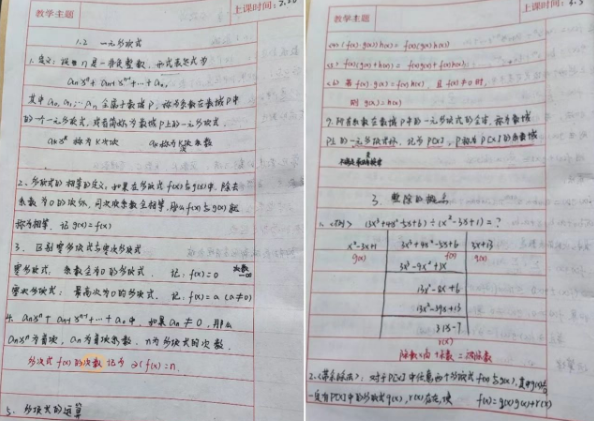 教学主题
上课时间:3.20
1.2 一元多项式
1.定义:设n是一非负整数,形式表达式为
anxⁿ+an-1xⁿ⁻¹+…+a₀,
其中a₀,a₁,…an全属于数域P,称为系数在数域P中
的一个一元多项式,或者简称为数域P上的一元多项式.
akxᵏ称为k次项 ak称为k次系数
2.多项式的相等的定义,如果在多项式f(x)与g(x)中,除去
系数为0的项外,同次项系数全相等,那么f(x)与g(x)就
称为相等,记g(x)=f(x)
3.区别零多项式与零次多项式
零多项式:系数全为0的多项式,记:f(x)=0 次数-∞
零次多项式:最高次为0的多项式,记:f(x)=a (a≠0)
4. anxⁿ+an-1xⁿ⁻¹+…+a₀中,如果an≠0,那么
anxⁿ为首项,an为首项系数,n为多项式的次数.
多项式f(x)的次数记为∂(f(x))=n.
5.多项式的运算
教学主题
上课时间:4.3
(f(x)·g(x))h(x)=f(x)(g(x)h(x))
f(x)(g(x)+h(x))=f(x)g(x)+f(x)h(x)
若f(x)·g(x)=f(x)h(x),且f(x)≠0时,
则g(x)=h(x)
7.所有系数在数域P中的一元多项式的全体,称为数域
P上的一元多项式环,记为P[x],P称为P[x]的系数域
3.整除的概念
(3x³+4x²-5x+6)÷(x²-3x+1)=?
x²-3x+1 3x³+4x²-5x+6 3x+13
g(x) f(x) q(x)
3x³-9x²+3x
13x²-8x+6
13x²-39x+13
31x-7
r(x)
除数×商+余数=被除数
2.(带余除法):对于P[x]中任意两个多项式f(x)与g(x),其中g(x)≠0
一定有P[x]中的多项式q(x),r(x)存在,使 f(x)=q(x)g(x)+r(x)